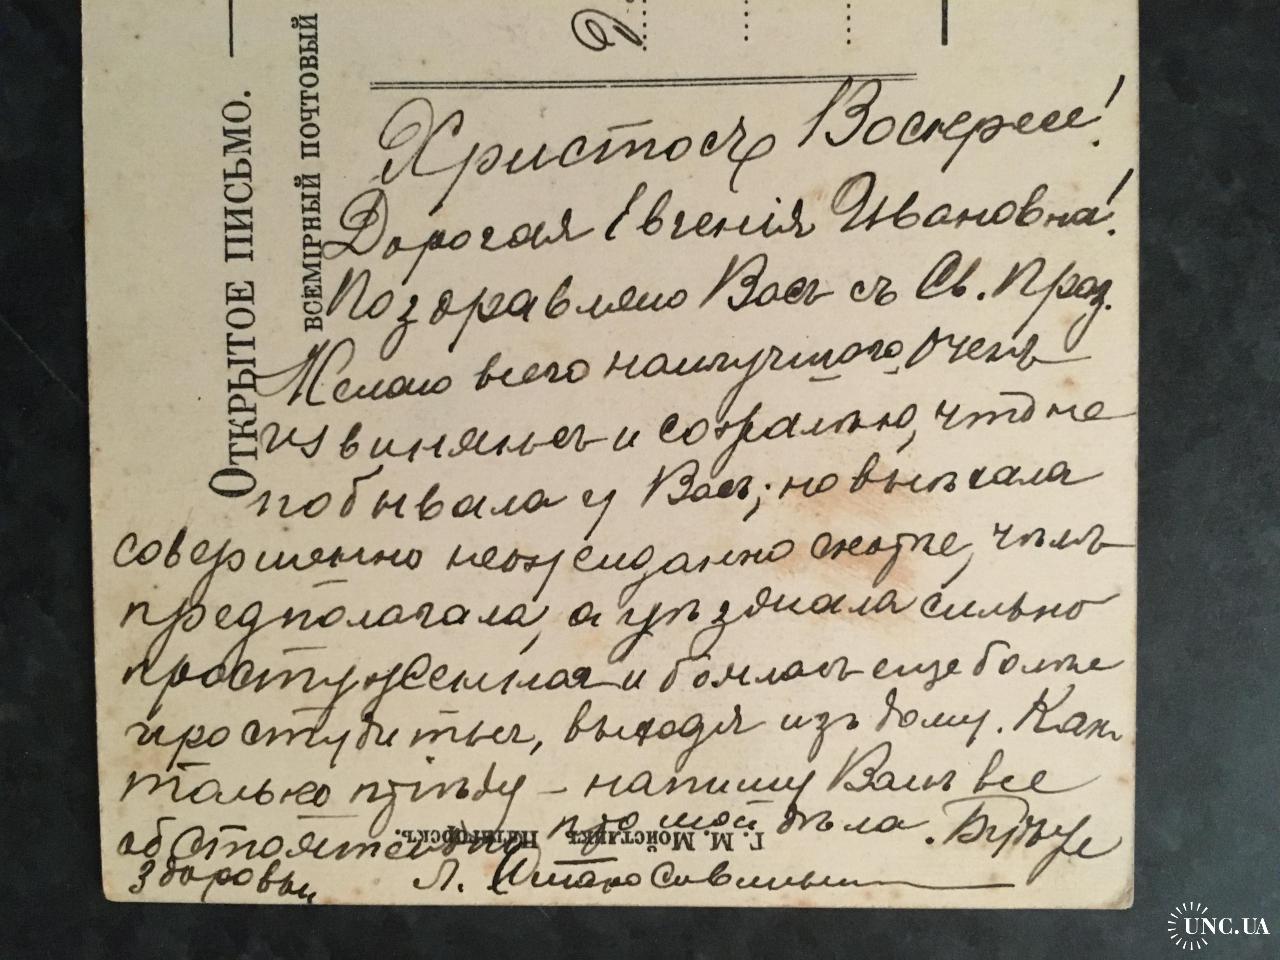 ОТКРЫТОЕ ПИСЬМО.
ВСЕМІРНЫЙ ПОЧТОВЫЙ
Христосъ Воскресе!
Дорогая Евгенія Ивановна!
Поздравляю Васъ съ Св. Праз.
Желаю всего наилучшаго, очень
извиняюсь и сожалѣю, что не
побывала у Васъ; но выѣхала
совершенно неожиданно скорѣе, чѣмъ
предполагала, а уѣзжала сильно
простуженная и боялась еще болѣе
простудиться, выходя изъ дому. Какъ
только пріѣду - напишу Вамъ все
обстоятельно про мои дѣла. Будьте
здоровы Л.
Г. М. Мойстлихъ Пятигорскъ.
UNC.UA